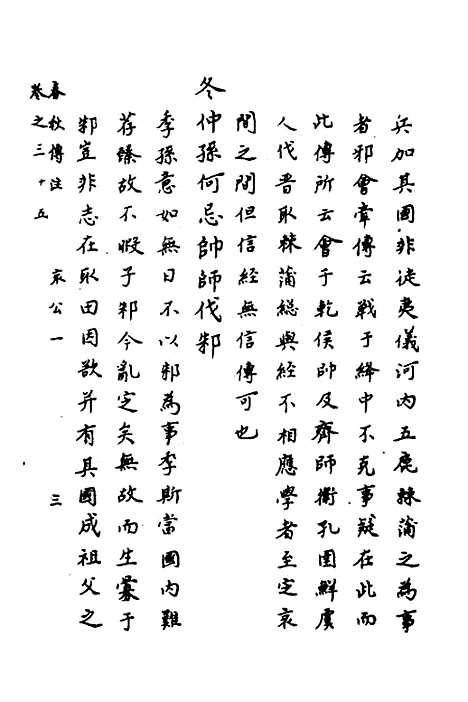 兵加其國非徒夷儀河内五鹿棘蒲之為事
者邪會韋傳云戰于絳中不克事疑在此而
此傳所云會于乾侯師及齊師衛孔圉鮮虞
人伐晋取棘蒲緫與經不相應學者至定哀
間之間但信經無信傳可也
冬仲孫何忌帥師伐邾
季孫意如無日不以邾為事季斯當國内難
荐臻故不暇于邾今亂定矣無故而生釁于
邾豈非志在取田因欲并有其國成祖父之
春秋傳注 哀公一 三
卷之三十五